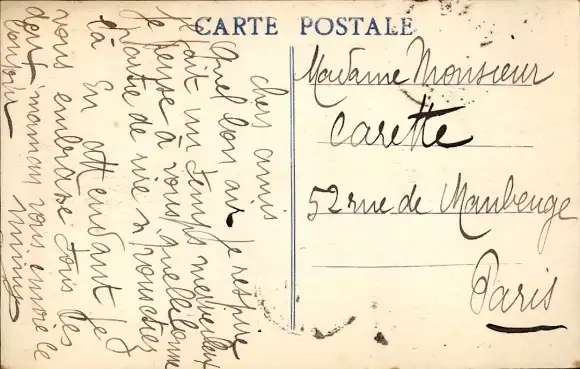 CARTE POSTALE
chers amis
Quel bon air je respire
il fait un temps merveilleux
Je pense à vous quelle bonne
de vie
là En attendant je
vous embrasse tous les
deux maman vous envoie le
bonjour
Mimy
Madame Monsieur
Carette
52 rue de Maubeuge
Paris